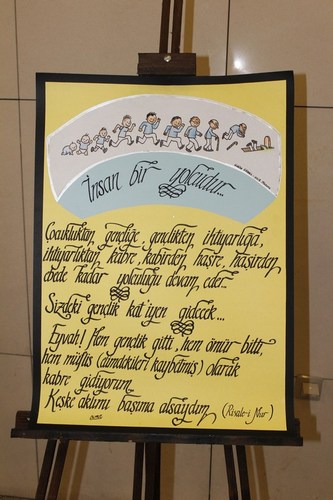 İnsan bir yolcudur...
Çocukluktan gençliğe, gençlikten, ihtiyarlığa,
ihtiyarlıktan, kabre, kabirden, haşre, haşirden
ebede kadar yolculuğu devam eder.
Sizdeki gençlik kat'iyen gidecek...
Eyvah! Hem gençlik gitti, hem ömür bitti,
hem müflis (elimdekileri kaybetmiş) olarak
kabre gidiyorum
Keşke aklımı başıma alsaydım (Risale-i Nur)